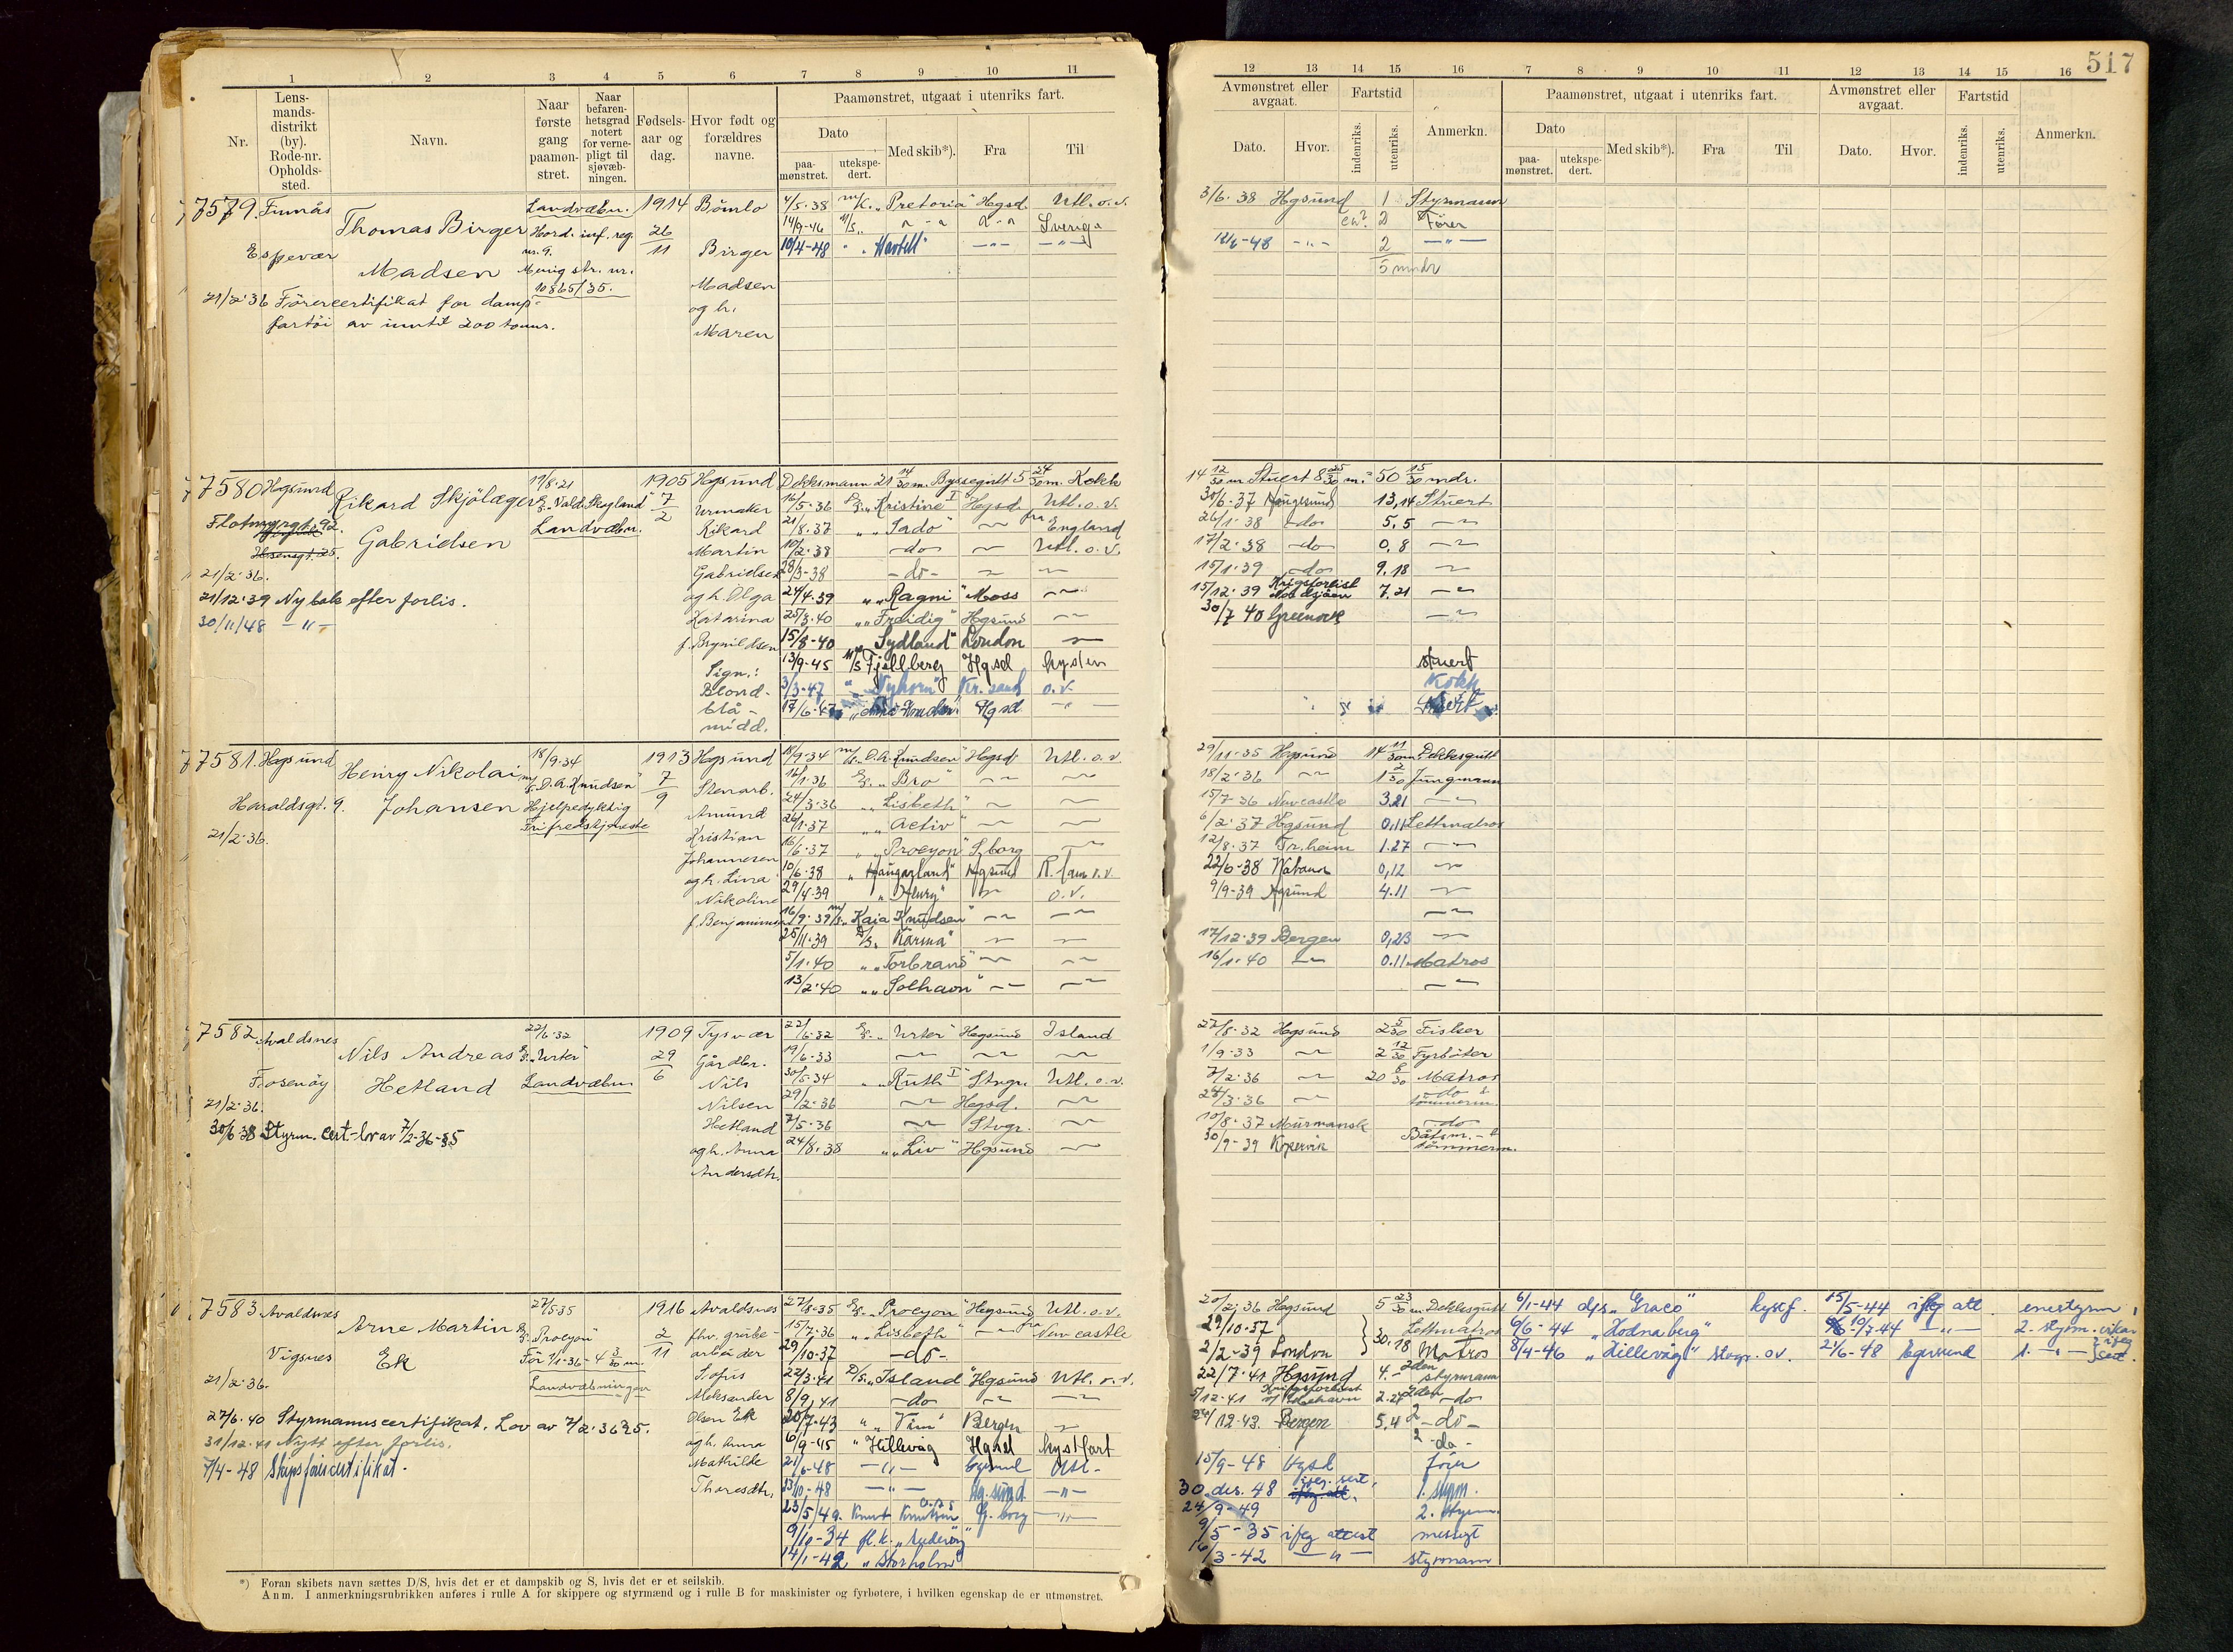 517
1 2 3 4 5 6 7 8 9 10 11
12 13 14 15 16 7 8 9 10 11 12 13 14 15 16
Nr.
Lens-
mands-
distrikt
(by).
Rode-nr.
Opholds-
sted.
Navn.
Naar
første
gang
paamøn-
stret.
Naar
befaren-
hetsgrad
notert
for verne-
pligt til
sjøvæb-
ningen.
Fødsels-
aar og
dag.
Hvor født og
forældres
navne.
Paamønstret, utgaat i utenriks fart.
Dato
paa-
mønstret.
utekspe-
dert.
Med skib*).
Fra
Til
Avmønstret eller
avgaat.
Dato.
Hvor.
Fartstid
indenriks.
utenriks.
Anmerkn.
Paamønstret, utgaat i utenriks fart.
Dato
paa-
mønstret.
utekspe-
dert.
Med skib*).
Fra
Til
Avmønstret eller
avgaat.
Dato.
Hvor.
Fartstid
indenriks.
utenriks.
Anmerkn.
7579. Finnås
Espevær
Thomas Birger
Madsen
Landvæbn.
Hord. inf. reg.
nr. 9.
Menig str. nr.
10865/35.
1914
26
11
Bömlo
Birger
Madsen
og h.
Maren
21/2-36 Förercertifikat for damp-
fartöi av inntil 200 tonns.
4/5-38 m/k. „Pretoria" Hgsd. Utl. o. v.
14/9-46 Sverige
10/4-48
3/6-38 Hgsund 1 Styrmann
2 Förer
12/6-48 2
5 mndr
7580 Hgsund
Flotmyrgt. 92.
Rikard Skjölæger
Gabrielsen
19/8-21
Landvæbn.
1905
7
2
Hgsund
Urmaker
Rikard
Martin
Gabrielsen
og h. Olga
Katarina
f. Brynildsen
Sign.:
Blond-
blå-
midd.
21/2-36.
21/12-39 Ny bok efter forlis.
30/11/48
Dekksmann 21 14/30 m. Byssegutt 5 24/30 m. Kokk
14 12/30 m Stuert 8 25/30 m. = 50 15/30 mdr.
16/5-36 „Kristine I" Hgsd. Utl. o. v.
21/8-37 „Tado" fra England
10/2-38 do Utl. o. v.
28/3-38 -do-
24/4-39 „Ragni" Moss
25/3-40 „Freidig" Hgsund
15/8-40 „Sydland" London
13/9-45 M/S Fjellberg Hgsd kysten
3/3-47 „Nyhorn" Kr. sand o. v.
17/6-47 Hgsd
30/6-37 Haugesund 13,14 Stuert
26/1-38 do 5.5
17/2-38 do 0,8
15/1-39 do 9.18
15/12-39 Krigsforlist Nordsjöen 7.21
30/7 40 Greenock
stuert
Kokk
Stuert
7581. Hgsund
Haraldsgt. 9.
21/2-36.
Henry Nikolai
Johansen
18/9-34
m/s. „O. A. Knudsen"
Hjelpedyktig
Fri fredstjeneste
1913
7
9
Hgsund
Stenarb.
Amund
Kristian
Johannesen
og h. Lina
Nikoline
f. Benjaminsen
18/9-34 m/s. „O. A. Knudsen" Hgsd Utl. o. v.
16/1-36 „Bro"
24/3-36 „Lisbeth"
26/1-37 „Activ"
16/6-37 „Procyon" S. borg
10/6-38 „Haugarland" Hgsund
29/4-39 „Henry" o. v.
16/9-39 m/s. Kaia Knudsen"
25/11-39 D/S. „Karma"
5/1-40 „Torbrand"
13/2-40 „Solhavn"
29/11-35 Hgsund 14 11/30 m. Dekksgutt
18/2-36 1 2/30 Jungmann
15/7-36 Newcastle 3.21
6/2-37 Hgsund 0,11 Lettmatros
12/8-37 Tr. heim 1.27
22/6-38 0,12
9/9-39 Hgsund 4.11
17/12-39 Bergen 0,23
16/1-40 0.11 Matros
7582 Avaldsnes
Fosenöy
21/2-36.
Nils Andreas
Hetland
22/6-32
„Urter"
Landvæbn
1909
29
6
Tysvær
Gårdbr.
Nils
Nilsen
Hetland
og h. Anna
Andersdtr.
30/6-38 Styrm. cert-lov av 7/2-36-§5
22/6-32 „Urter" Hgsund Island
19/6-33
30/5-34 „Ruth I" Stvgr. Utl. o. v.
29/2-36 Hgsd.
7/5-36 Stvgr.
24/8-38 „Liv" Hgsund
22/8-32 Hgsund 2 5/30 Fisker
1/9-33 2 12/30 Fyrböter
7/2-36 20 8/30 Matros
24/3-36 do & tömmerm.
10/8-37 Murmansk do
30/9-39 Kopervik Båtsm. - & tömmerm.
7583 Avaldsnes
Vigsnes
21/2-36.
Arne Martin
Ek
27/5-35
„Procyon"
Før 1/1-36 - 4 3/30 m.
Landvæbningen
1916
2
11
Avaldsnes
fhv. grube-
arbeider
Sofus
Aleksander
Olsen Ek
og h. Anna
Mathilde
Thoresdtr.
27/6-40 Styrmannscertifikat. Lov av 7/2-36 §5.
31/12-41 Nytt efter forlis.
7/4-48 Skipsförercertifikat.
27/5-35 „Procyon" Hgsund Utl. o. v.
15/7-36 „Lisbeth" fra Newcastle
29/10-37 -do-
22/3-41 D/S. „Island" Hgsund Utl. o. v.
8/9-41 do
20/7-43 „Vim" Bergen
6/9-45 „Hillevåg Hgsd kystfart
21/6-48
13/10-48 Hg. sund
23/5/49. Knut Knutsen
9/10-34
14/1-42 „Storholm"
20/2-36 Hgsund 5 23/30 m Dekksgutt
29/10-37 Lettmatros
2/2-39 London 30,18 Matros
22/7-41 Hgsund 4.- 2den styrmann
5/12-41 Krigsforlist 2.27 2den do
24/12-43 Bergen 5,4 2 -do-
2 -do-
15/9-48 Hgsd förer
30. des. 48 1. styrm.
24/9-49 2. styrm.
9/5-35 ifög attest messegt
16/3-42 styrmann
6/1-44 d/s „Graco" kystf. 15/5-44 ifög att enestyrm.
6/6-44 „Hodnaberg" 10/7-44 2. styrm. vikar
8/4-46 „Hillevåg" Stvgr. o v. 21/6-48 Egersund 1.
*) Foran skibets navn sættes D/S, hvis det er et dampskib og S, hvis det er et seilskib.
Anm. I anmerkningsrubrikken anføres i rulle A for skippere og styrmænd og i rulle B for maskinister og fyrbøtere, i hvilken egenskap de er utmønstret.